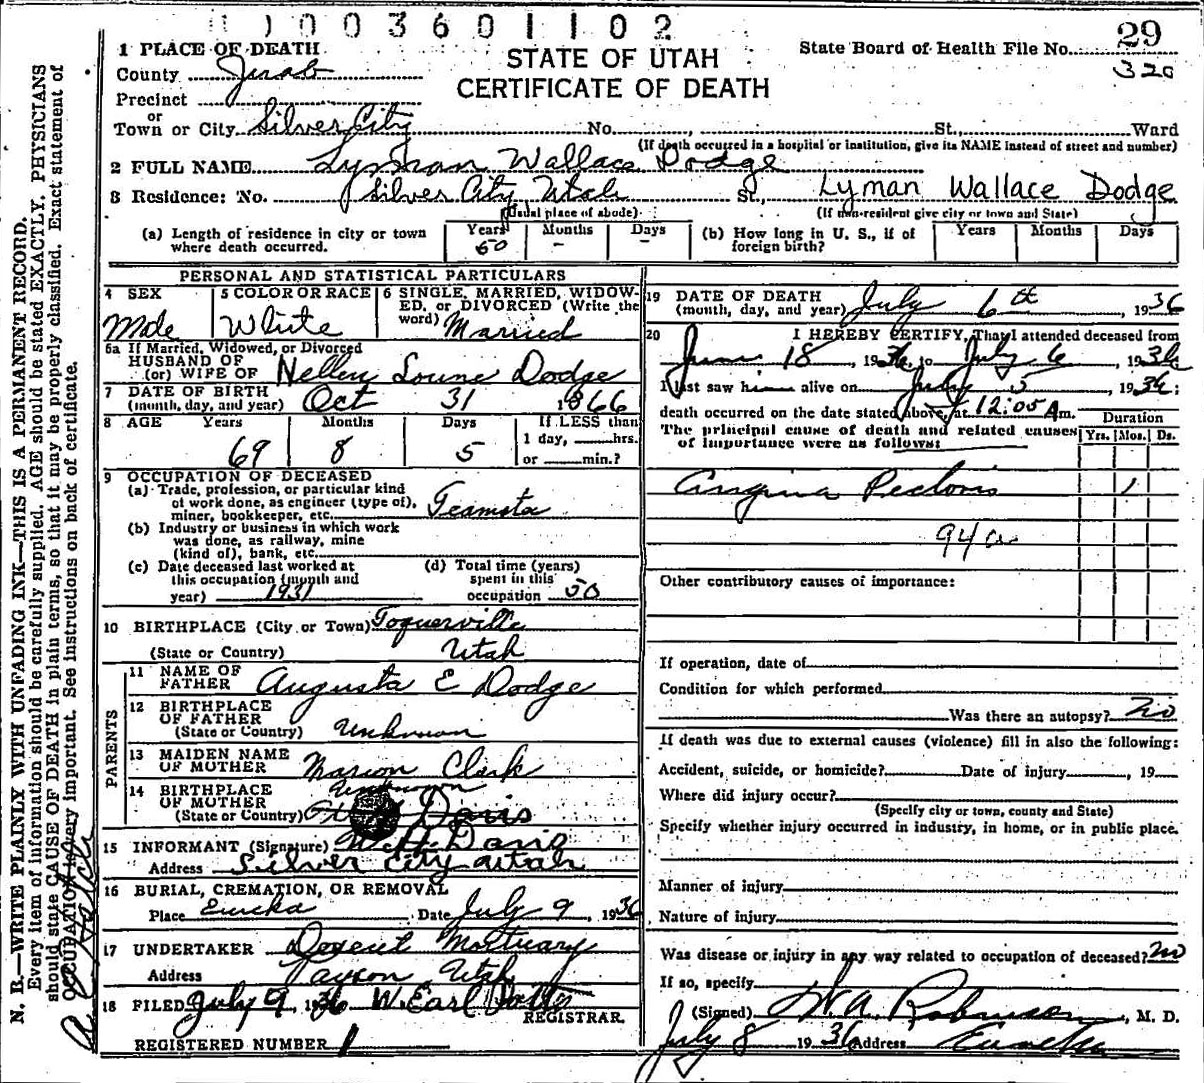 1003601102
29
320
1 PLACE OF DEATH
STATE OF UTAH
CERTIFICATE OF DEATH
State Board of Health File No.
County Juab
Precinct
or
Town or City Silver City No. , St., Ward
(If death occurred in a hospital or institution, give its NAME instead of street and number)
2 FULL NAME Lyman Wallace Dodge
3 Residence: No. Silver City Utah St., Lyman Wallace Dodge
(Usual place of abode) (If non-resident give city or town and State)
(a) Length of residence in city or town where death occurred. Years 50 Months - Days -
(b) How long in U. S., if of foreign birth? Years Months Days
PERSONAL AND STATISTICAL PARTICULARS
4 SEX Male
5 COLOR OR RACE White
6 SINGLE, MARRIED, WIDOW-
ED, or DIVORCED (Write the
word) Married
6a If Married, Widowed, or Divorced
HUSBAND OF
(or) WIFE OF Dodge
7 DATE OF BIRTH
(month, day, and year) Oct 31 1866
8 AGE Years Months Days If LESS than
69 8 5 1 day, hrs.
or min.?
9 OCCUPATION OF DECEASED
(a) Trade, profession, or particular kind
of work done, as engineer (type of),
miner, bookkeeper, etc. Teamsta
(b) Industry or business in which work
was done, as railway, mine
(kind of), bank, etc.
(c) Date deceased last worked at
this occupation (month and
year) 1931
(d) Total time (years)
spent in this
occupation 50
10 BIRTHPLACE (City or Town) Toquerville
(State or Country) Utah
PARENTS
11 NAME OF
FATHER Augusta E Dodge
12 BIRTHPLACE
OF FATHER
(State or Country) Unknown
13 MAIDEN NAME
OF MOTHER Marion Clark
14 BIRTHPLACE
OF MOTHER
(State or Country) Unknown
Davis
15 INFORMANT (Signature) W. H. Davis
Address Silver City Utah
16 BURIAL, CREMATION, OR REMOVAL
Place Eureka Date July 9, 1936
17 UNDERTAKER Deseret Mortuary
Address Payson Utah
18 FILED July 9, 1936 W. Earl
REGISTRAR.
REGISTERED NUMBER 1
19 DATE OF DEATH
(month, day, and year) July 6th, 1936
20 I HEREBY CERTIFY, That I attended deceased from
June 18, 1936, to July 6, 1936
I last saw him alive on July 5, 1936;
death occurred on the date stated above, at 12:05 A m.
The principal cause of death and related causes
of importance were as follows:
Duration
Yrs. Mos. Ds.
Angina Pectoris 1
94a
Other contributory causes of importance:
If operation, date of
Condition for which performed
Was there an autopsy? no
If death was due to external causes (violence) fill in also the following:
Accident, suicide, or homicide? Date of injury , 19
Where did injury occur?
(Specify city or town, county and State)
Specify whether injury occurred in industry, in home, or in public place.
Manner of injury
Nature of injury
Was disease or injury in any way related to occupation of deceased? no
If so, specify
(Signed) Robinson, M. D.
July 8 1936 Address Eureka
N. B.—WRITE PLAINLY WITH UNFADING INK—THIS IS A PERMANENT RECORD.
Every item of information should be carefully supplied. AGE should be stated EXACTLY. PHYSICIANS
should state CAUSE OF DEATH in plain terms, so that it may be properly classified. Exact statement of
OCCUPATION is very important. See instructions on back of certificate.